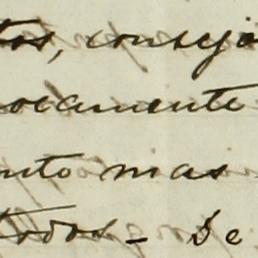 tos, consejo
ocamente
nto mas
todos - Se